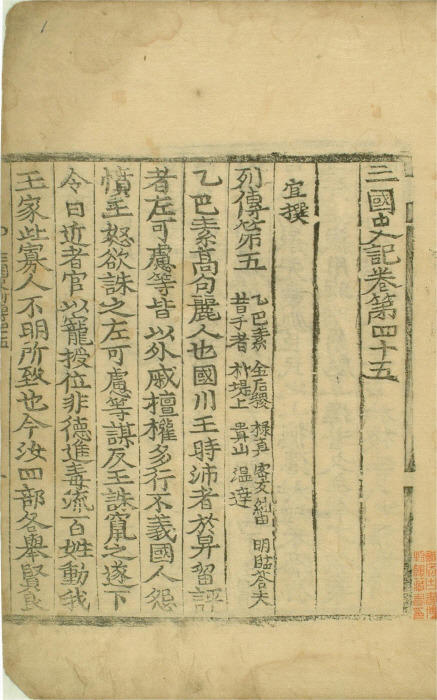 三國史記卷第四十五
宣撰
列傳第五 乙巴素 金后稷 祿眞 密友紐由 明臨荅夫
昔于老 朴堤上 貴山 温達
乙巴素髙句麗人也國川王時沛者於畀留評
者左可慮等皆以外戚擅權多行不義國人怨
憤王怒欲誅之左可慮等謀反王誅竄之遂下
令曰近者官以寵授位非德進毒流百姓動我
王家此寡人不明所致也今汝四部各舉賢良
1